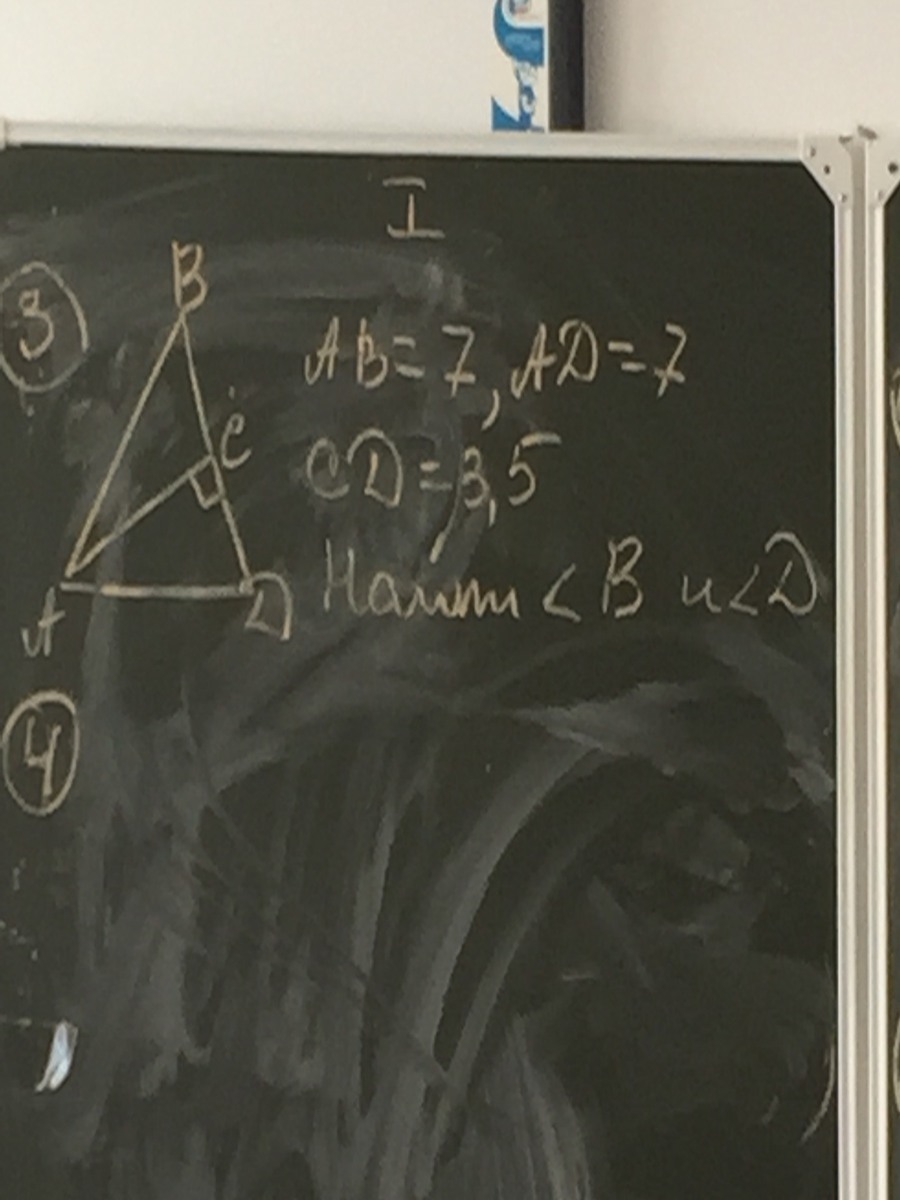 I
3
B
AB=7, AD=7
C
CD=3,5
Найти <B и <D
A
D
4